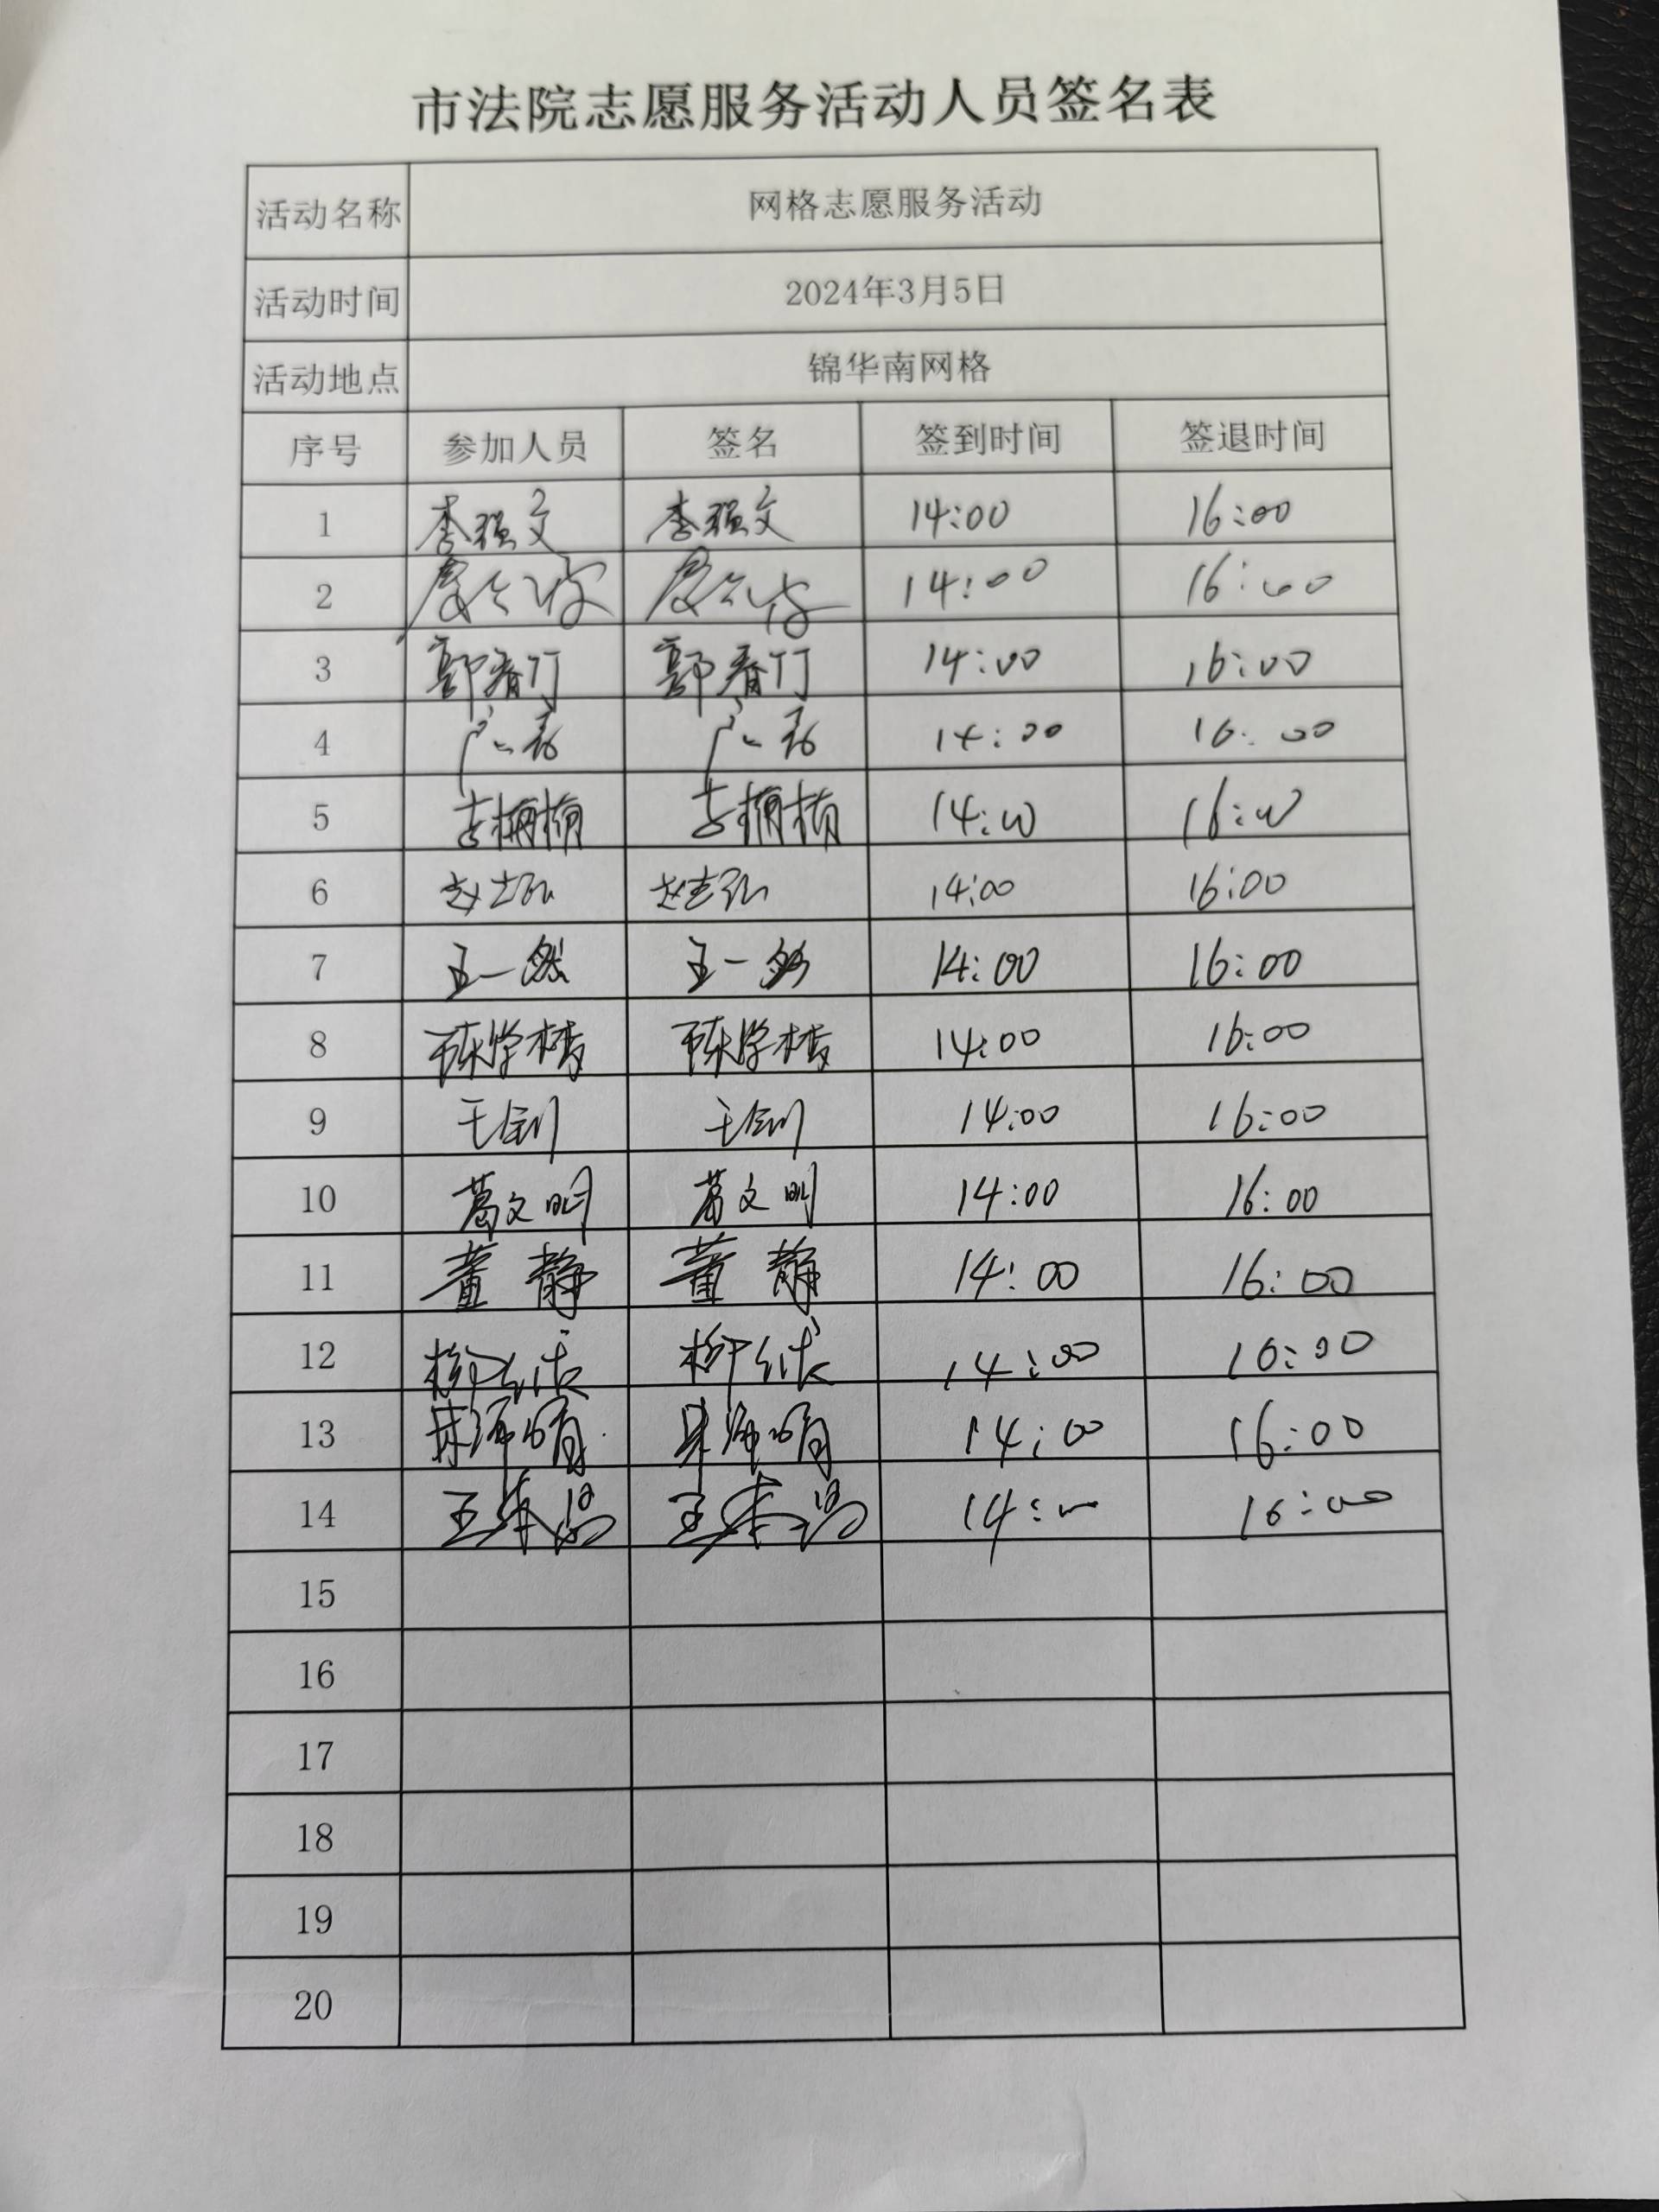 市法院志愿服务活动人员签名表
活动名称 网格志愿服务活动
活动时间 2024年3月5日
活动地点 锦华南网格
序号 参加人员 签名 签到时间 签退时间
1 李强文 李强文 14:00 16:00
2 14:00 16:00
3 郭春竹 郭春竹 14:00 16:00
4 14:00 16:00
5 李楠楠 李楠楠 14:00 16:00
6 赵志弘 赵志弘 14:00 16:00
7 王一然 王一然 14:00 16:00
8 陈学楼 陈学楼 14:00 16:00
9 王剑 王剑 14:00 16:00
10 葛文明 葛文明 14:00 16:00
11 董静 董静 14:00 16:00
12 柳 柳 14:00 16:00
13 14:00 16:00
14 王 王 14:00 16:00
15
16
17
18
19
20